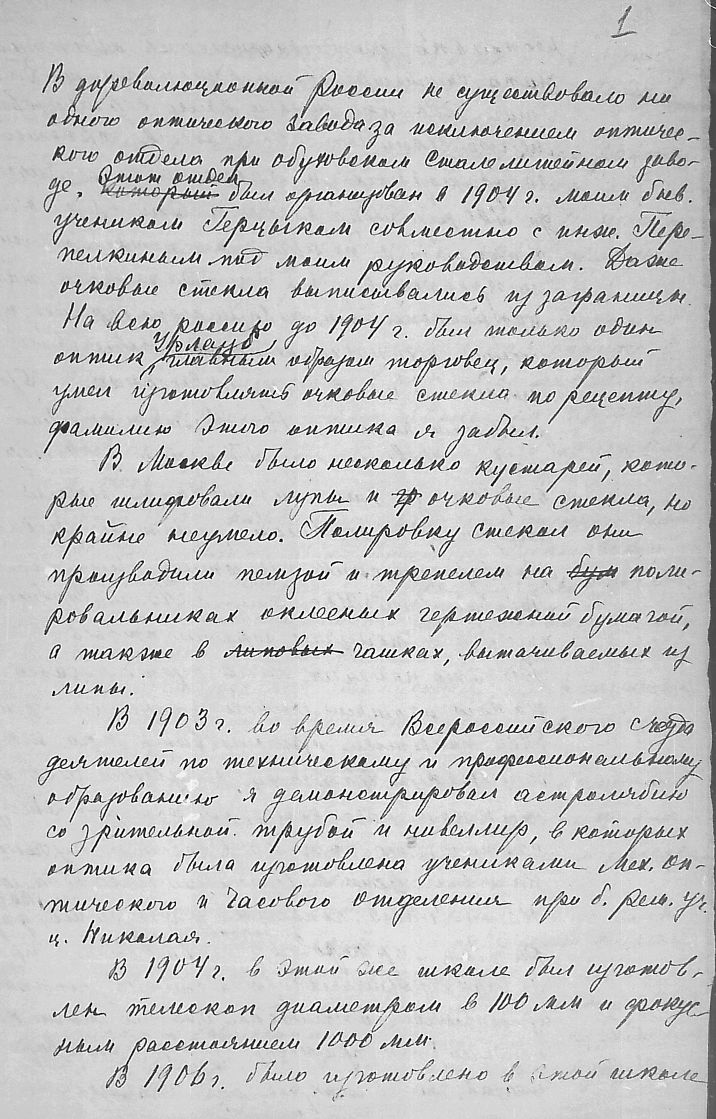 1
В дореволюционной России не существовало ни
одного оптического завода за исключением оптичес-
кого отдела при обуховском сталелитейном заво-
де. Этот отдел
который был организован в 1904 г. моим быв.
учеником Герцыком совместно с инж. Пере-
пелкиным под моим руководством. Даже
очковые стекла выписывались из заграницы.
На всю россию до 1904 г. был только один
оптик Урлауб
главным образом торговец, который
умел изготовлять очковые стекла по рецепту,
фамилию этого оптика я забыл.
В Москве было несколько кустарей, кото-
рые шлифовали лупы и гр очковые стекла, но
крайне неумело. Полировку стекол они
производили пемзой и трепелем на бум поли-
ровальниках оклееных чертежной бумагой,
а также в липовых чашках, вытачиваемых из
липы.
В 1903 г. во время Всероссийского съезда
деятелей по техническому и профессиональному
образованию я демонстрировал астролябию
со зрительной трубой и нивеллир, в которых
оптика была изготовлена учениками Мех. оп-
тического и Часового отделения при б. рем. уч.
ц. Николая.
В 1904 г. в этой же школе был изготов-
лен телескоп диаметром в 100 мм и фокус-
ным расстоянием 1000 мм.
В 1906 г. было изготовлено в этой школе